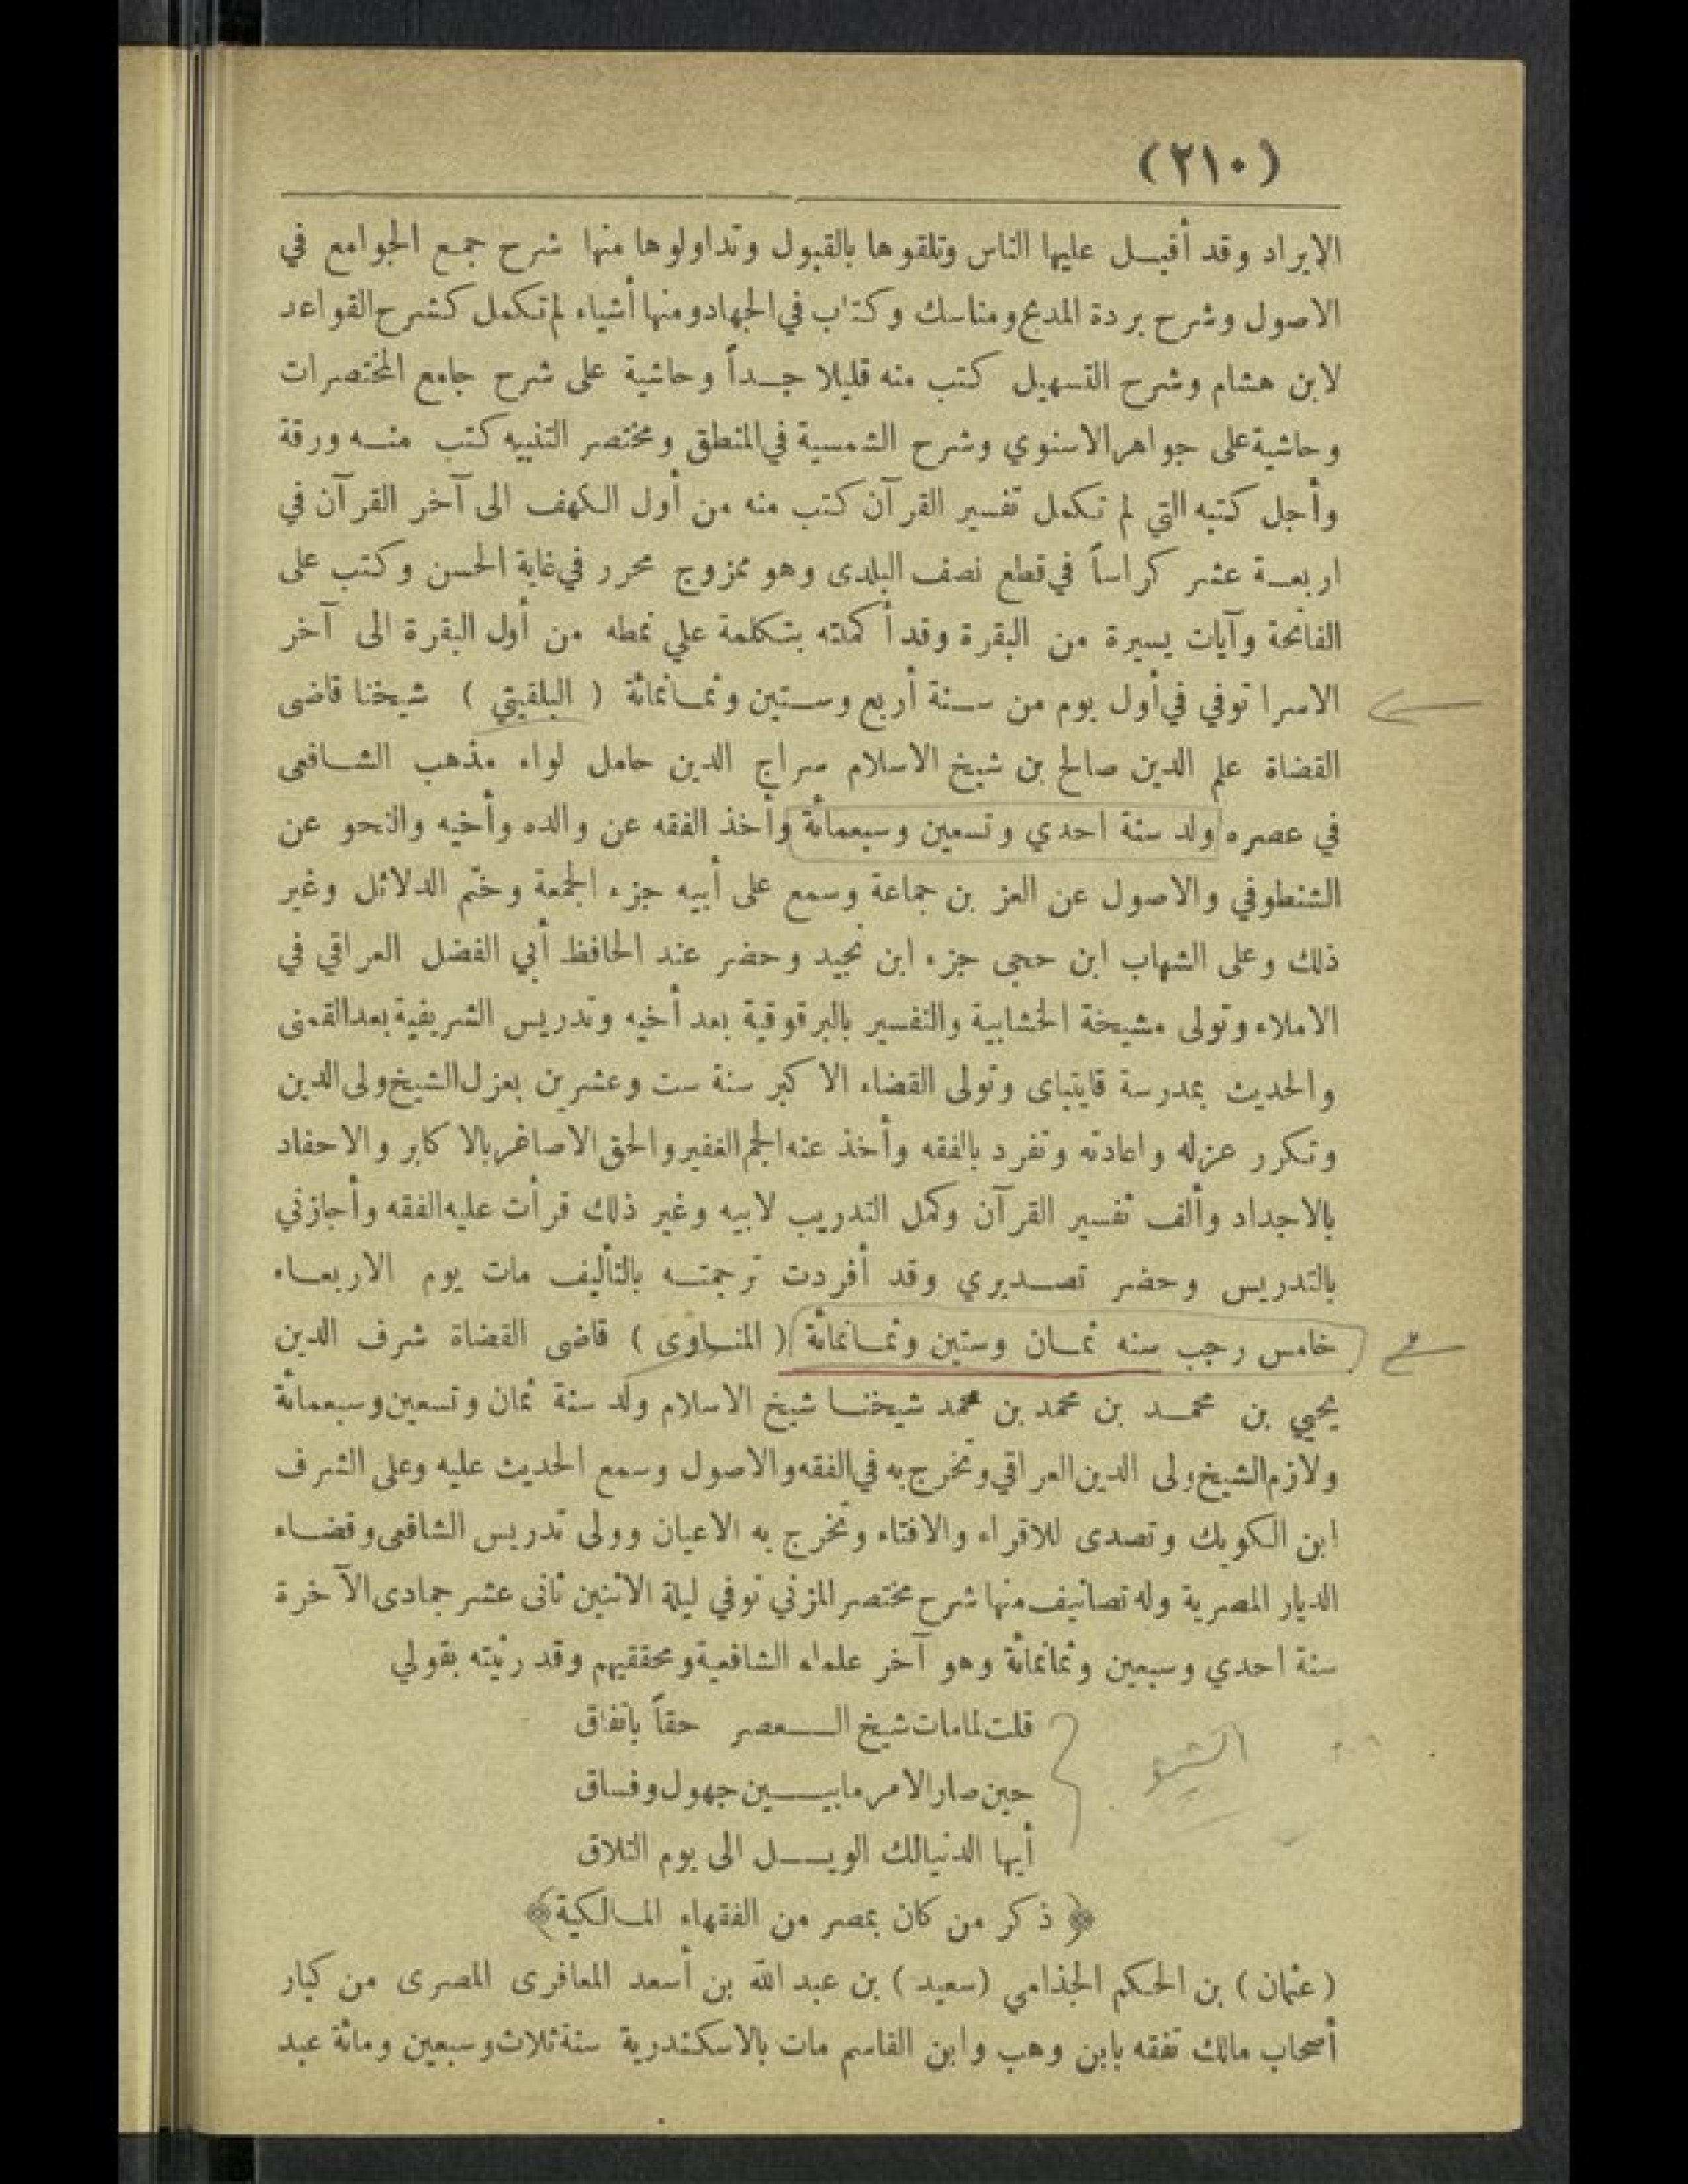 (٢١٠)
الايراد وقد أقبل عليها الناس وتلقوها بالقبول وتداولوها منها شرح جمع الجوامع في
الاصول وشرح بردة المديح ومناسك وكتاب في الجهاد ومنها أشياء لم تكمل كشرح القواعد
لابن هشام وشرح التسهيل كتب منه قليلا جداً وحاشية على شرح جامع المختصرات
وحاشية على جواهر الاسنوي وشرح الشمسية في المنطق ومختصر التنبيه كتب منه ورقة
وأجل كتبه التي لم تكمل تفسير القرآن كتب منه من أول الكهف الى آخر القرآن في
اربعة عشر كراساً في قطع نصف البلدى وهو ممزوج محرر في غاية الحسن وكتب على
الفاتحة وآيات يسيرة من البقرة وقد أكملته بتكلمة علي نمطه من أول البقرة الى آخر
الاسرا توفي في أول يوم من سنة أربع وستين وثمانمائة ( البلقيني ) شيخنا قاضى
القضاة علم الدين صالح بن شيخ الاسلام سراج الدين حامل لواء مذهب الشافعى
في عصره ولد سنة احدي وتسعين وسبعمائة وأخذ الفقه عن والده وأخيه والنحو عن
الشنطوفي والاصول عن العز بن جماعة وسمع على أبيه جزء الجمعة وختم الدلائل وغير
ذلك وعلى الشهاب ابن حجى جزء ابن نجيد وحضر عند الحافظ أبي الفضل العراقي في
الاملاء وتولى مشيخة الخشابية والتفسير بالبرقوقية بعد أخيه وتدريس الشريفية بعد القمنى
والحديث بمدرسة قايتباى وتولى القضاء الاكبر سنة ست وعشرين بعزل الشيخ ولى الدين
وتكرر عزله واعادته وتفرد بالفقه وأخذ عنه الجم الغفير والحق الاصاغر بالاكابر والاحفاد
بالاجداد وألف تفسير القرآن وكمل التدريب لابيه وغير ذلك قرأت عليه الفقه وأجازني
بالتدريس وحضر تصديري وقد أفردت ترجمته بالتأليف مات يوم الاربعاء
خامس رجب سنه ثمان وستين وثمانمائة ( المناوى ) قاضى القضاة شرف الدين
يحيي بن محمد بن محمد بن محمد شيخنا شيخ الاسلام ولد سنة ثمان وتسعين وسبعمائة
ولازم الشيخ ولى الدين العراقي وتخرج به في الفقه والاصول وسمع الحديث عليه وعلى الشرف
ابن الكويك وتصدى للاقراء والافتاء وتخرج به الاعيان وولى تدريس الشافعى وقضاء
الديار المصرية وله تصانيف منها شرح مختصر المزني توفي ليلة الاثنين ثانى عشر جمادى الآخرة
سنة احدي وسبعين وثمانمائة وهو آخر علماء الشافعية ومحققيهم وقد رثيته بقولي
قلت لما مات شيخ الـعصر حقاً باتفاق
حين صار الامر ما بيـن جهول وفساق
أيها الدنيا لك الويـل الى يوم التلاق
﴿ ذكر من كان بمصر من الفقهاء المالكية ﴾
( عثمان ) بن الحكم الجذامي ( سعيد ) بن عبد الله بن أسعد المعافرى المصرى من كبار
أصحاب مالك تفقه بابن وهب وابن القاسم مات بالاسكندرية سنة ثلاث وسبعين ومائة عبد